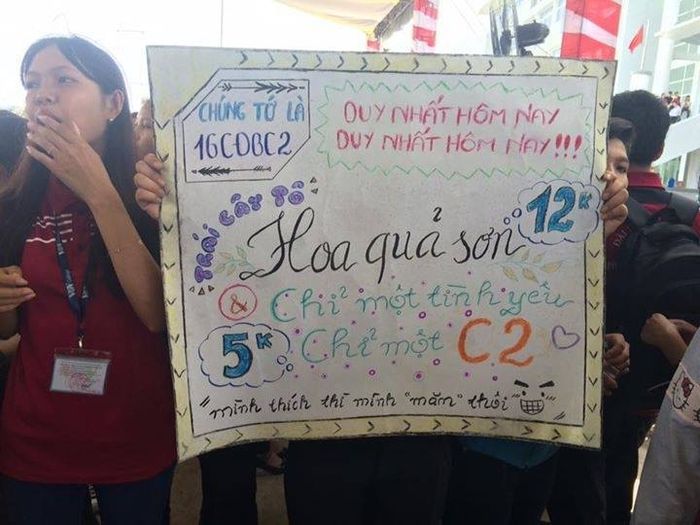 CHÚNG TỚ LÀ
16CĐBC2
DUY NHẤT HÔM NAY
DUY NHẤT HÔM NAY!!!
TRÁI CÂY TÔ
12K
Hoa quả sơn
& Chỉ một tình yêu
5K
Chỉ một C2
"mình thích thì mình "măm" thôi